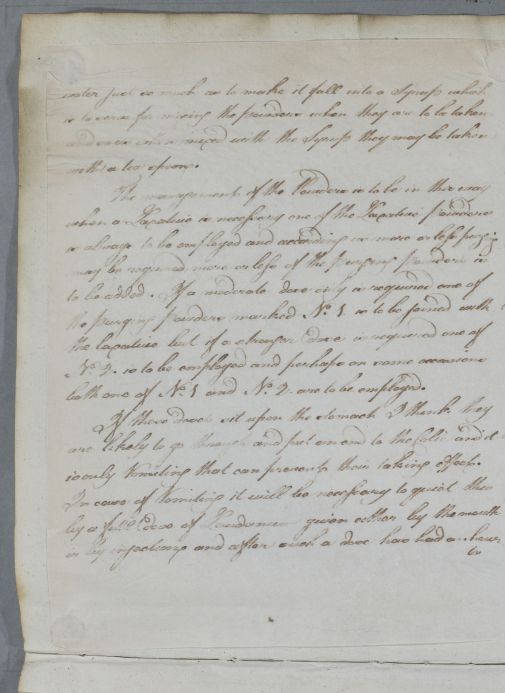 water just so much as to make it fall into a Syrup which
is to serve for mixing the powders when they are to be taken
and once mixed with the Syrup they may be taken
with a tea spoon.
The management of the Powders is to be in this way
when a Laxative is necessary one of the Laxative powders
is always to be employed and according as more or less purging
may be required more or less of the purging powders is
to be added. If a moderate dose only is required one of
the purging powders marked No. 1 is to be joined with
the laxative but if a stronger dose is required one of
No. 2. is to be employed and perhaps on some occasions
both one of No. 1 and No. 2. are to be employed.
If these doses sit upon the stomach I think they
are likely to go through and put an end to the Colic and it
is only Vomiting that can prevent their taking effect.
In case of Vomiting it will be necessary to quiet this
by a full dose of Laudanum given either by the mouth
or by injections and after such a dose has had an hour
or